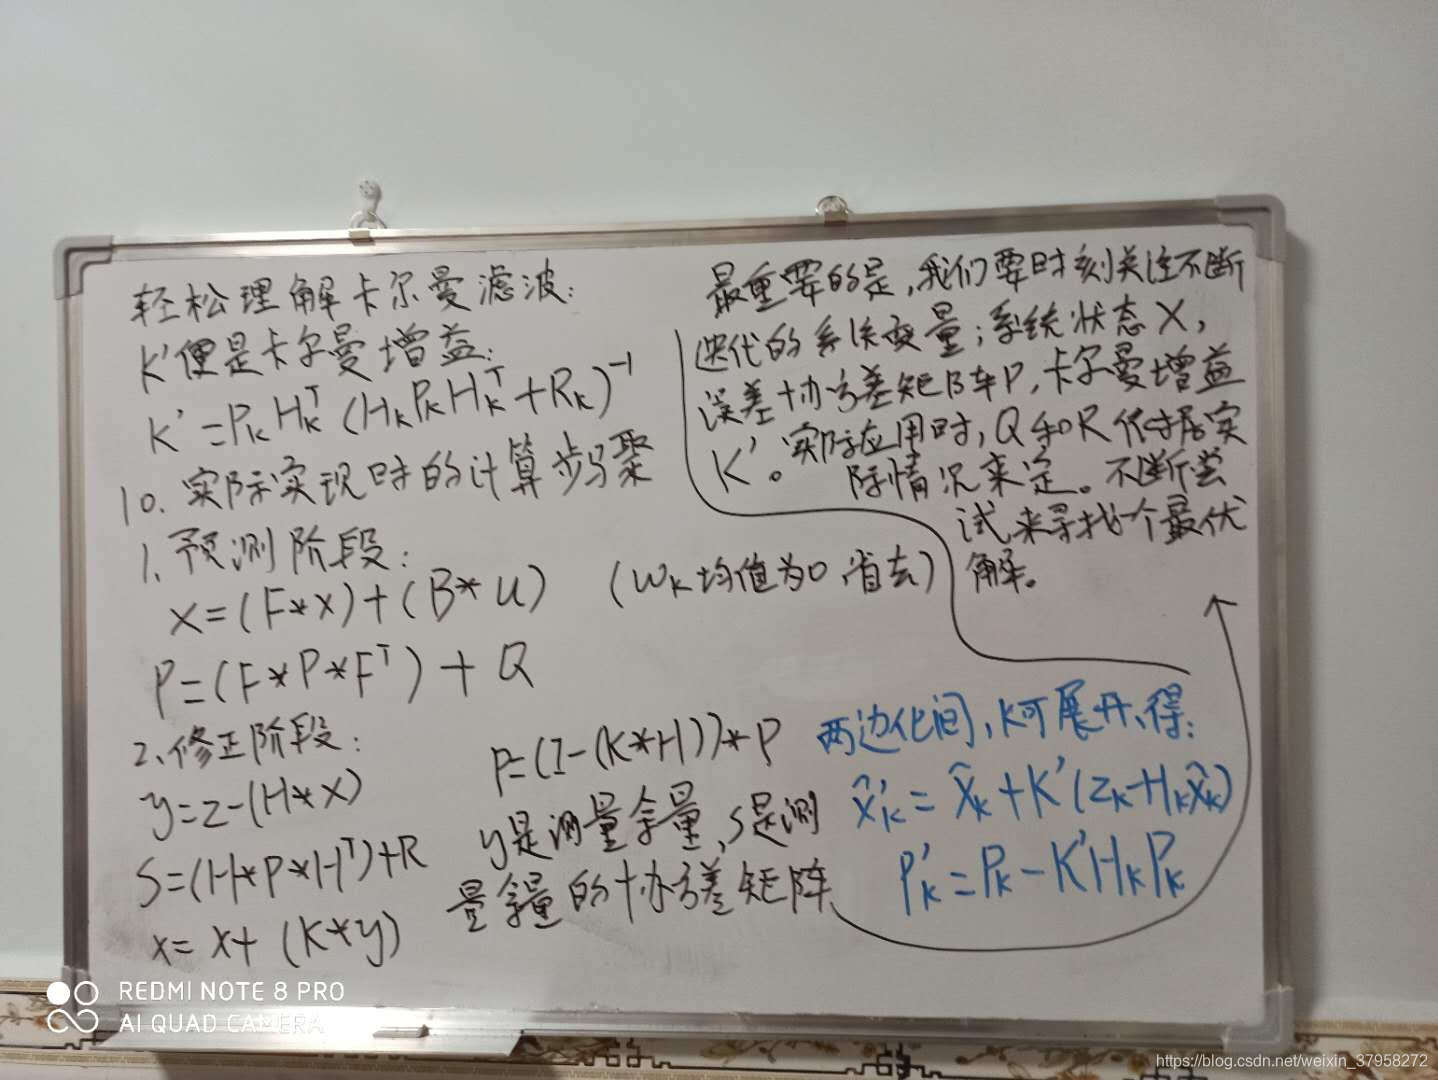 轻松理解卡尔曼滤波:
K'便是卡尔曼增益:
K'=PₖHₖᵀ(HₖPₖHₖᵀ+Rₖ)⁻¹
10.实际实现时的计算步骤
1.预测阶段:
x=(F*x)+(B*u) (wₖ均值为0,省去)
P=(F*P*Fᵀ)+Q
2.修正阶段:
y=z-(H*x)
S=(H*P*Hᵀ)+R
x=x+(K*y)
P=(I-(K*H))*P
y是测量余量,S是测
量余量的协方差矩阵
最重要的是,我们要时刻关注不断
迭代的系统变量;系统状态X,
误差协方差矩阵P,卡尔曼增益
K'。实际应用时,Q和R依据实
际情况来定。不断尝
试来寻找一个最优
解。
两边化简,K可展开,得:
x̂ₖ'=x̂ₖ+K'(zₖ-Hₖx̂ₖ)
Pₖ'=Pₖ-K'HₖPₖ
REDMI NOTE 8 PRO
AI QUAD CAMERA
https://blog.csdn.net/weixin_37958272